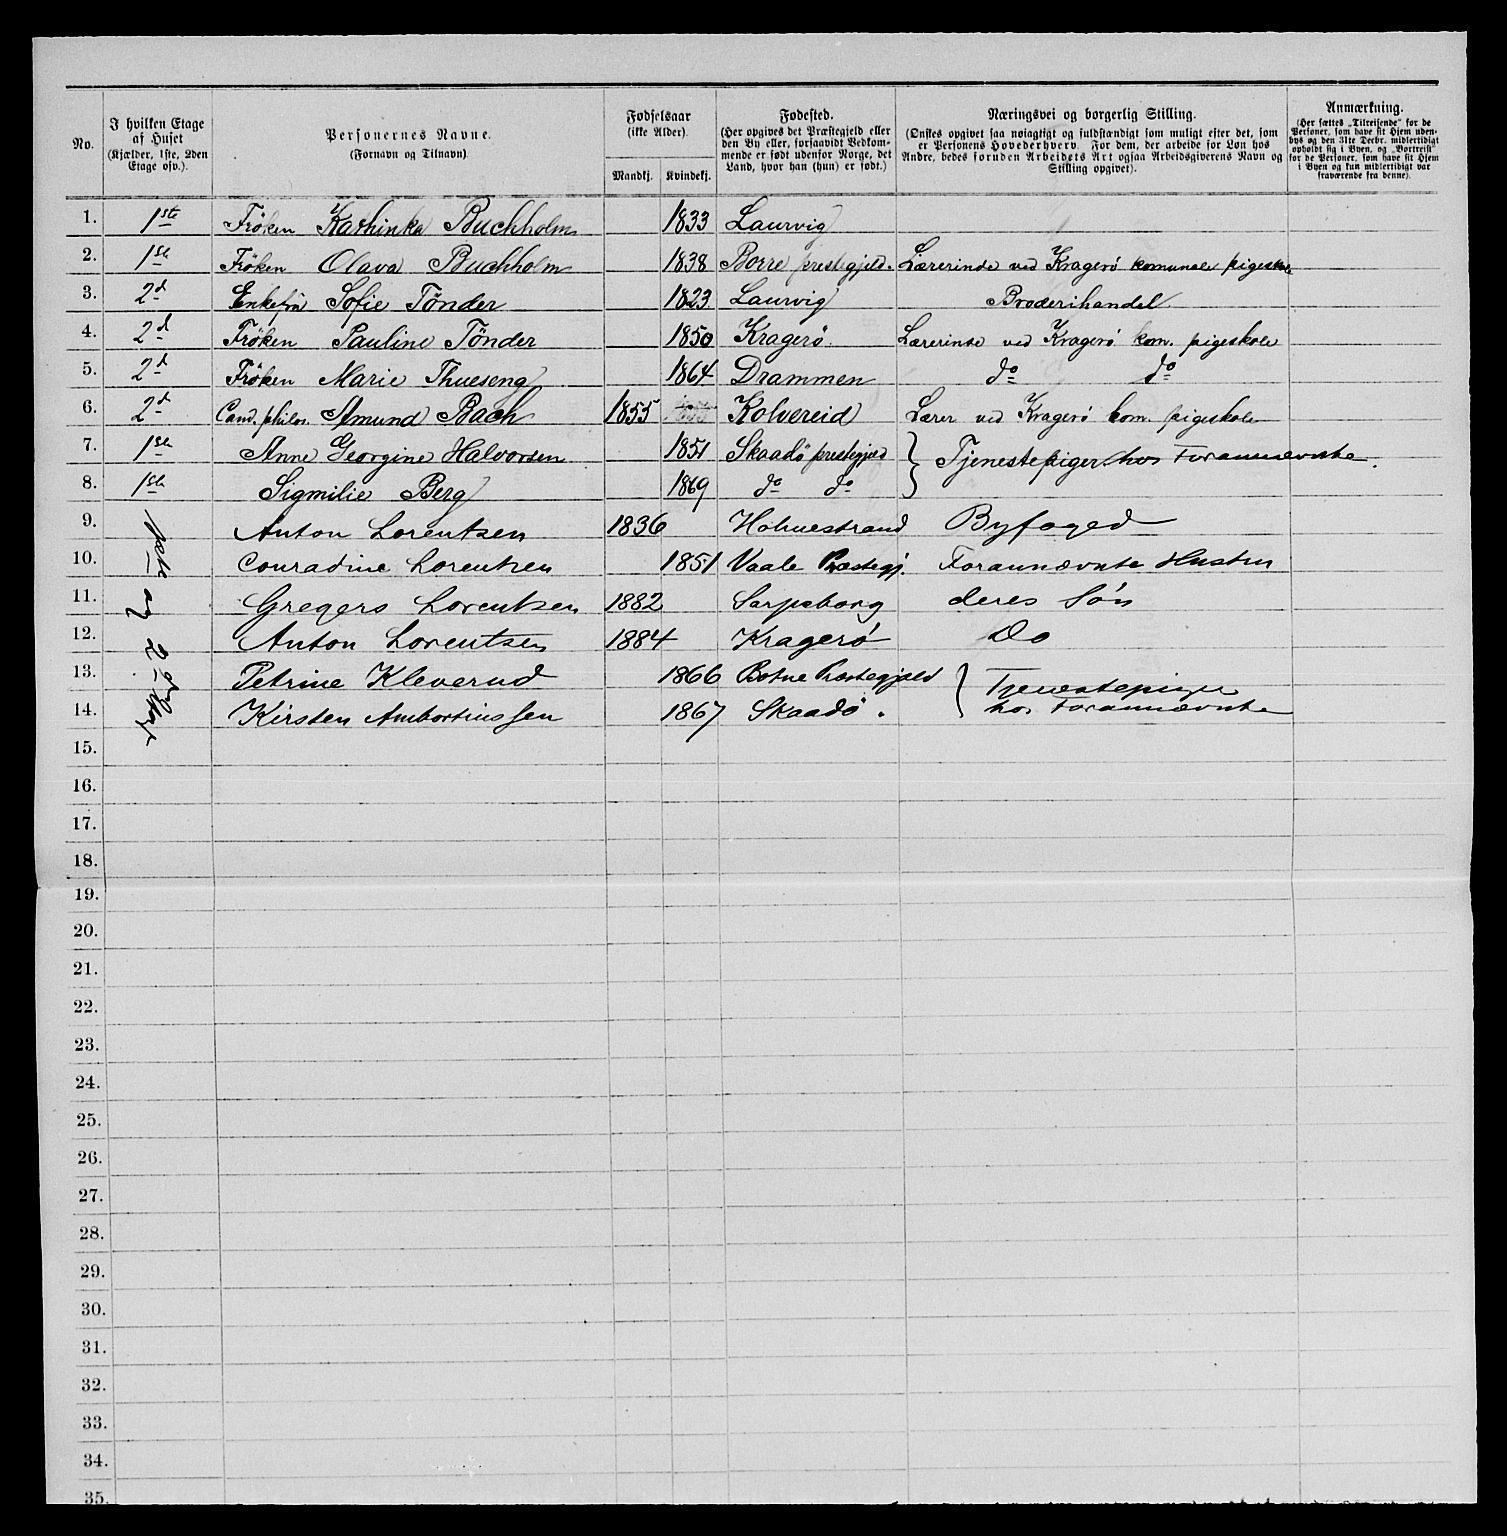 No. | I hvilken Etage af Huset (Kjælder, 1ste, 2den Etage osv.). | Personernes Navne. (Fornavn og Tilnavn). | Fødselsaar (ikke Alder). Mandkj. | Kvindekj. | Fødested. (Her opgives det Præstegjeld eller den By eller, forsaavidt Vedkommende er født udenfor Norge, det Land, hvor han (hun) er født.) | Næringsvei og borgerlig Stilling. (Ønskes opgivet saa nøiagtigt og fuldstændigt som muligt efter det, som er Personens Hovederhverv. For dem, der arbeide for Løn hos Andre, bedes foruden Arbeidets Art ogsaa Arbeidsgiverens Navn og Stilling opgivet). | Anmærkning. (Her sættes „Tilreisende" for de Personer, som have sit Hjem udenbys og den 31te Decbr. midlertidigt opholdt sig i Byen, og „Bortreist" for de Personer, som have sit Hjem i Byen og kun midlertidigt var fraværende fra denne).
1. 1ste Frøken Kathinka Buchholm 1833 Laurvig
2. 1ste Frøken Olava Buchholm 1838 Borre prestegjeld. Lærerinde ved Kragerö komunale pigeskole
3. 2d Enkefru Sofie Tönder 1823 Laurvig Broderihandel
4. 2d Fröken Pauline Tönder 1850 Kragerö. Lærerinde ved Kragerö kom. pigeskole
5. 2d Fröken Marie Thueseng 1864 Drammen do do
6. 2d Cand. philos. Amund Bach 1855 Kolvereid Lærer ved Kragerö kom. pigeskole
7. 1ste Anne Georgine Halvorsen 1851 Skaadö prestegjeld } Tjenestepiger hos Forannævnte.
8. 1ste Sigmilie Berg 1869 do do
9. Anton Lorentzen 1836 Holmestrand Byfoged
10. Conradine Lorentzen 1851 Vaale Præstegj. Forannævnte Hustru
11. Gregers Lorentzen 1882 Sarpsborg deres Sön
12. Anton Lorentzen 1884 Kragerö Do
13. Petrine Kleverud 1866 Botne Præstegjæld } Tjenestepiger
14. Kirsten Ambortiussen 1867 Skaadö. hos Forannævnte
1ste og 2
15.
16.
17.
18.
19.
20.
21.
22.
23.
24.
25.
26.
27.
28.
29.
30.
31.
32.
33.
34.
35.